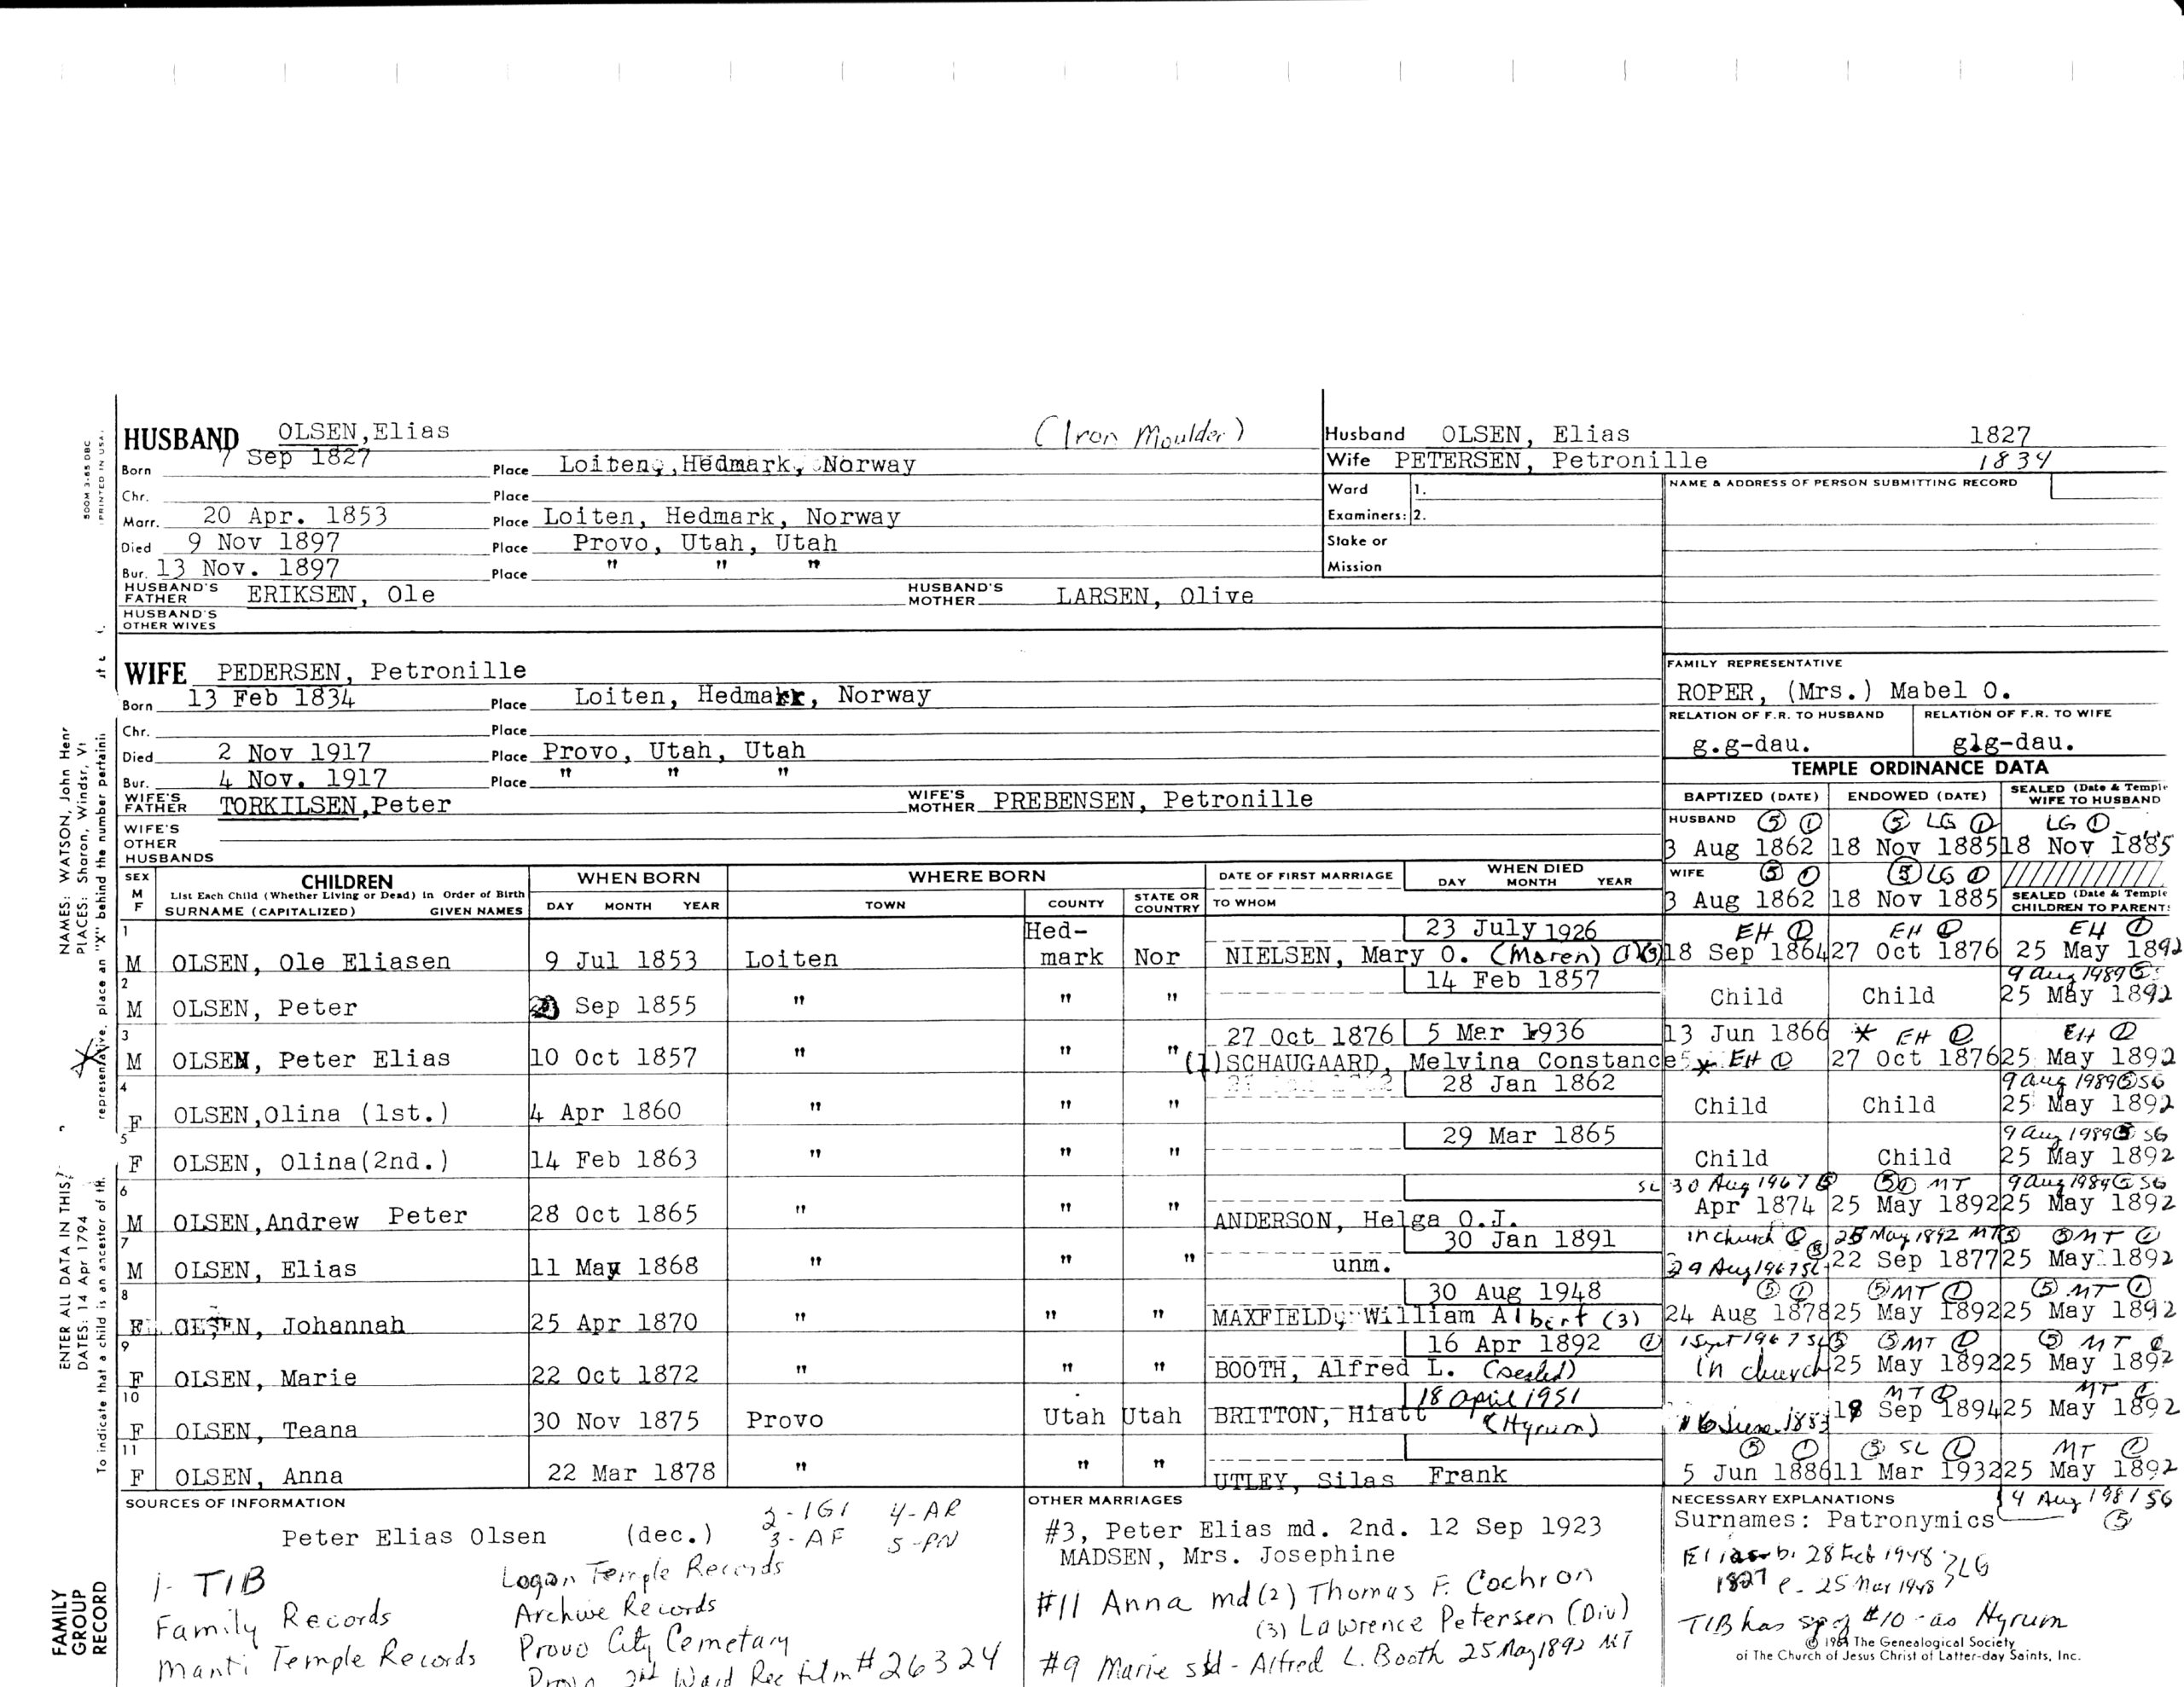 HUSBAND OLSEN, Elias (Iron Moulder)
Born 7 Sep 1827 Place Loiten, Hedmark, Norway
Chr. Place
Marr. 20 Apr. 1853 Place Loiten, Hedmark, Norway
Died 9 Nov 1897 Place Provo, Utah, Utah
Bur. 13 Nov. 1897 Place " " "
HUSBAND'S FATHER ERIKSEN, Ole HUSBAND'S MOTHER LARSEN, Olive
HUSBAND'S OTHER WIVES
Husband OLSEN, Elias 1827
Wife PETERSEN, Petronille 1834
Ward 1.
Examiners: 2.
Stake or
Mission
NAME & ADDRESS OF PERSON SUBMITTING RECORD
WIFE PEDERSEN, Petronille
Born 13 Feb 1834 Place Loiten, Hedmark, Norway
Chr. Place
Died 2 Nov 1917 Place Provo, Utah, Utah
Bur. 4 Nov. 1917 Place " " "
WIFE'S FATHER TORKILSEN, Peter WIFE'S MOTHER PREBENSEN, Petronille
WIFE'S OTHER HUSBANDS
FAMILY REPRESENTATIVE
ROPER, (Mrs.) Mabel O.
RELATION OF F.R. TO HUSBAND RELATION OF F.R. TO WIFE
g.g-dau. glg-dau.
TEMPLE ORDINANCE DATA
BAPTIZED (DATE) ENDOWED (DATE) SEALED (Date & Temple WIFE TO HUSBAND
HUSBAND ⑤ ① ⑤ LG ① LG ①
3 Aug 1862 18 Nov 1885 18 Nov 1885
WIFE ⑤ ① ⑤ LG ①
3 Aug 1862 18 Nov 1885 SEALED (Date & Temple CHILDREN TO PARENTS
SEX M F CHILDREN List Each Child (Whether Living or Dead) in Order of Birth SURNAME (CAPITALIZED) GIVEN NAMES
WHEN BORN DAY MONTH YEAR WHERE BORN TOWN COUNTY STATE OR COUNTRY DATE OF FIRST MARRIAGE TO WHOM WHEN DIED DAY MONTH YEAR
1 Hed- 23 July 1926 EH ① EH ① EH ①
M OLSEN, Ole Eliasen 9 Jul 1853 Loiten mark Nor NIELSEN, Mary O. (Maren) ①③ 18 Sep 1864 27 Oct 1876 25 May 1892
2 14 Feb 1857 9 Aug 1989 ⑤
M OLSEN, Peter Sep 1855 " " " Child Child 25 May 1892
3 27 Oct 1876 5 Mar 1936 13 Jun 1866 * EH ① EH ①
M OLSEN, Peter Elias 10 Oct 1857 " " " (1) SCHAUGAARD, Melvina Constance * EH ① 27 Oct 1876 25 May 1892
4 28 Jan 1862 9 Aug 1989 ⑤ SG
F OLSEN, Olina (1st.) 4 Apr 1860 " " " Child Child 25 May 1892
5 29 Mar 1865 9 Aug 1989 ⑤ SG
F OLSEN, Olina(2nd.) 14 Feb 1863 " " " Child Child 25 May 1892
6 SL 30 Aug 1967 ⑤ ⑤① MT 9 Aug 1989 ⑤ SG
M OLSEN, Andrew Peter 28 Oct 1865 " " " ANDERSON, Helga O.J. Apr 1874 25 May 1892 25 May 1892
7 30 Jan 1891 in church ① 25 May 1892 MT⑤ ⑤MT ①
M OLSEN, Elias 11 May 1868 " " " unm. 29 Aug 1967 SL 22 Sep 1877 25 May 1892
8 30 Aug 1948 ⑤ ① ⑤MT ① ⑤ MT ①
F OLSEN, Johannah 25 Apr 1870 " " " MAXFIELD, William Albert (3) 24 Aug 1878 25 May 1892 25 May 1892
9 16 Apr 1892 ① 1 Sept 1967 SL⑤ ⑤MT ① ⑤ MT ①
F OLSEN, Marie 22 Oct 1872 " " " BOOTH, Alfred L. (sealed) in church 25 May 1892 25 May 1892
10 18 April 1951 MT ① MT ①
F OLSEN, Teana 30 Nov 1875 Provo Utah Utah BRITTON, Hiatt (Hyrum) 6 June 1883 18 Sep 1894 25 May 1892
11 ⑤ ① ⑤ SL ① MT ①
F OLSEN, Anna 22 Mar 1878 " " " UTLEY, Silas Frank 5 Jun 1886 11 Mar 1932 25 May 1892
SOURCES OF INFORMATION
Peter Elias Olsen (dec.) 2-IGI 4-AR
3-AF 5-PN
1- TIB Logan Temple Records
Family Records Archive Records
Manti Temple Records Provo City Cemetary
Provo 2nd Ward Rec film # 26324
OTHER MARRIAGES
#3, Peter Elias md. 2nd. 12 Sep 1923
MADSEN, Mrs. Josephine
#11 Anna md (2) Thomas F. Cochron
(3) Lawrence Petersen (Div)
#9 Marie sld - Alfred L. Booth 25 May 1892 MT
NECESSARY EXPLANATIONS 14 Aug 1981 SG
Surnames: Patronymics ⑤
Elias b. 28 Feb 1948 LG
1827 e. 25 Mar 1948
TIB has sp of #10 - as Hyrum
© 1964 The Genealogical Society
of The Church of Jesus Christ of Latter-day Saints, Inc.
500M 3-65 DBC
PRINTED IN USA.
ENTER ALL DATA IN THIS
NAMES: WATSON, John Henr
DATES: 14 Apr 1794
PLACES: Sharon, Windsr, Vt
To indicate that a child is an ancestor of th. representative, place an "X" behind the number pertaini
FAMILY
GROUP
RECORD